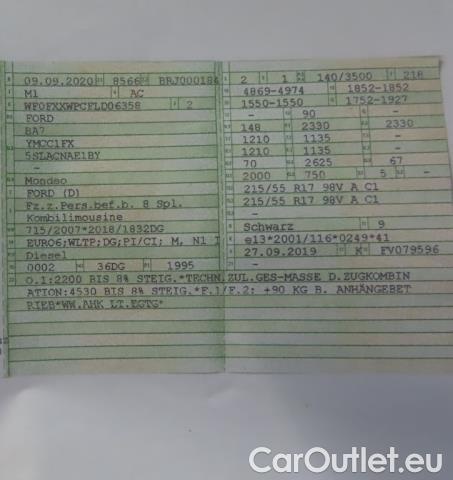 09.09.2020 8566 BRJ000184
M1 AC
WF0FXXWPCFLD06358 2
FORD
BA7
YMCC1FX
5SLACNAE1BY
-
Mondeo
FORD (D)
Fz.z.Pers.bef.b. 8 Spl.
Kombilimousine
715/2007*2018/1832DG
EURO6;WLTP;DG;PI/CI; M, N1 I
Diesel
0002 36DG 1995
2 1 140/3500 218
4869-4974 1852-1852
1550-1550 1752-1927
- 90 - -
148 2330 2330
1210 1135 -
1210 1135 -
70 2625 67
2000 750 5 -
215/55 R17 98V A C1
215/55 R17 98V A C1
-
Schwarz 9
e13*2001/116*0249*41
27.09.2019 K FV079596
-
O.1:2200 BIS 8% STEIG.*TECHN.ZUL.GES-MASSE D.ZUGKOMBIN
ATION:4530 BIS 8% STEIG.*F.1/F.2: +90 KG B. ANHÄNGEBET
RIEB*WW.AHK LT.EGTG*
CarOutlet.eu